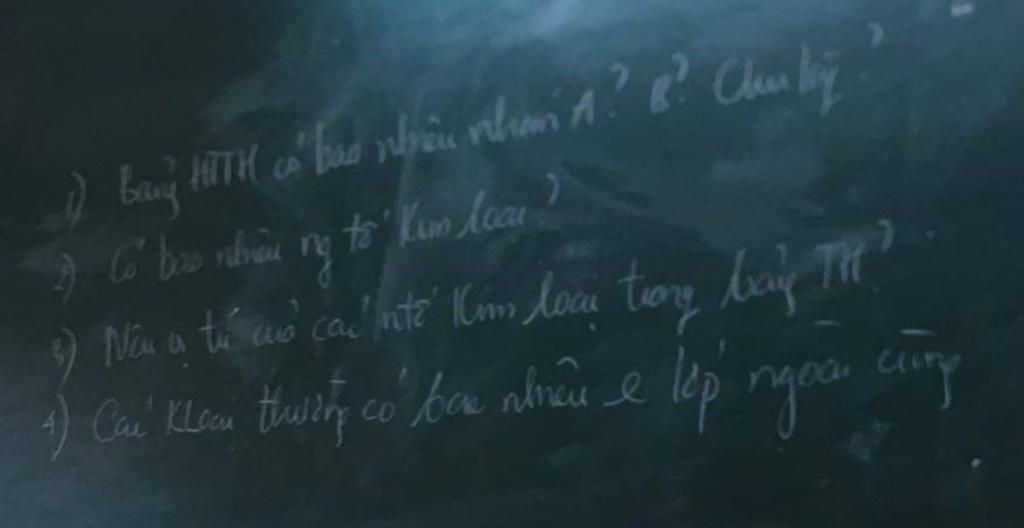 1) Bảng HTTH có bao nhiêu nhóm A? B? Chu kỳ?
2) Có bao nhiêu ng tố Kim loại?
3) Nêu vị trí của các ntố Kim loại trong bảng TH?
4) Các KLoại thường có bao nhiêu e lớp ngoài cùng